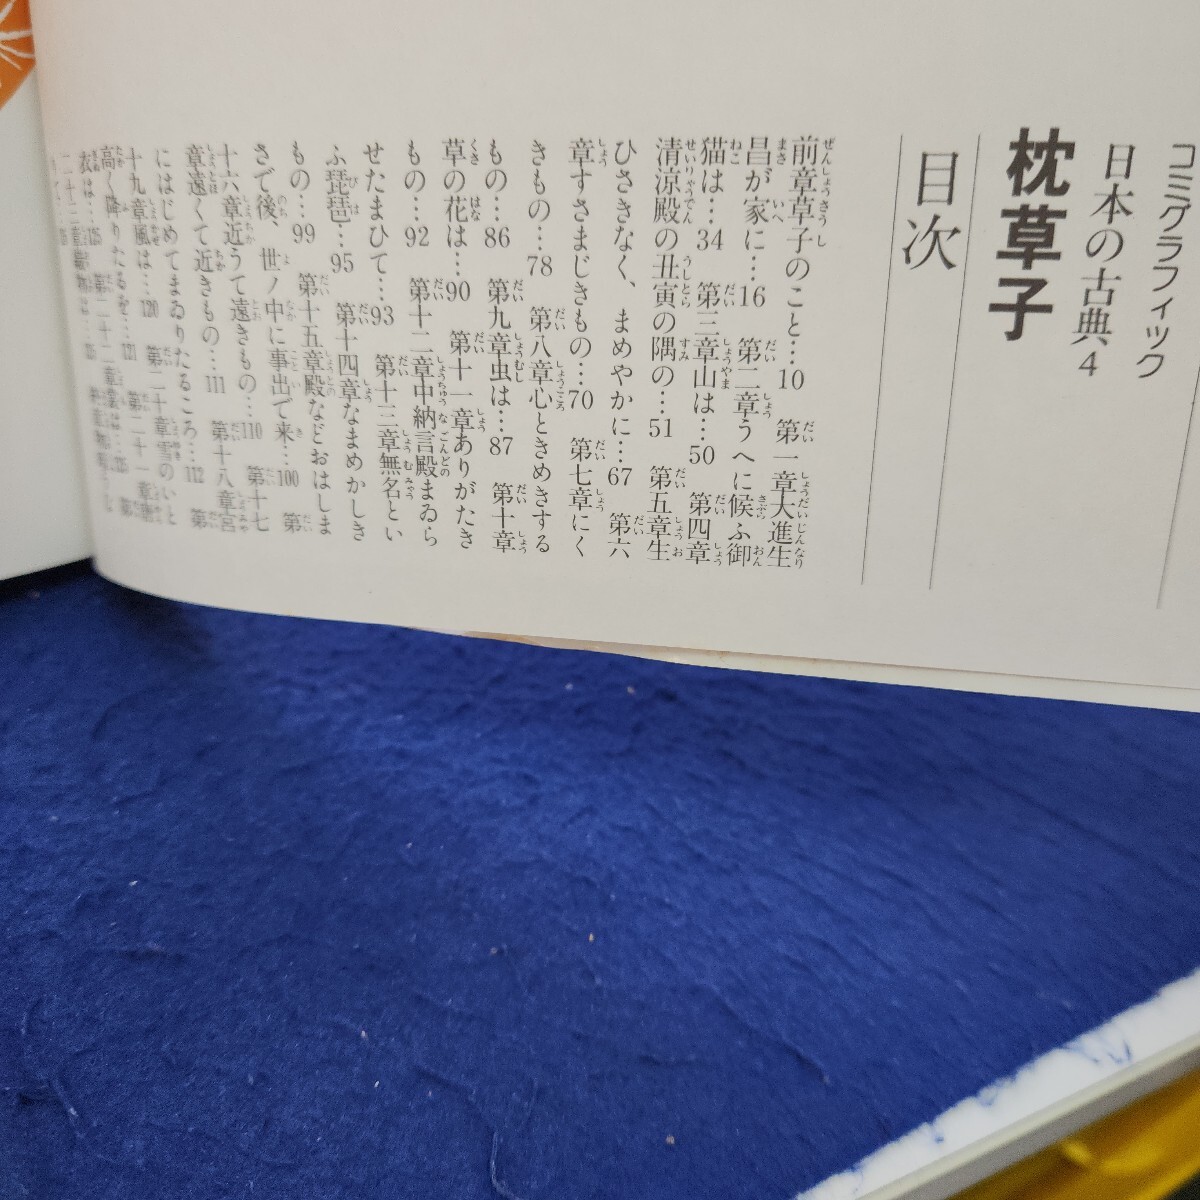 コミグラフィック
日本の古典4
枕草子
目次
前章草子のこと…10　第一章大進生
昌が家に…16　第二章うへに候ふ御
猫は…34　第三章山は…50　第四章
清涼殿の丑寅の隅の…51　第五章生
ひさきなく、まめやかに…67　第六
章すさまじきもの…70　第七章にく
きもの…78　第八章心ときめきする
もの…86　第九章虫は…87　第十章
草の花は…90　第十一章ありがたき
もの…92　第十二章中納言殿まゐら
せたまひて…93　第十三章無名とい
ふ琵琶…95　第十四章なまめかしき
もの…99　第十五章殿などおはしま
さで後、世ノ中に事出で来…100　第
十六章近うて遠きもの…110　第十七
章遠くて近きもの…111　第十八章宮
にはじめてまゐりたるころ…112　第
十九章風は…120　第二十章雪のいと
高く降りたるを…121　第二十一章唐
衣は…125　第二十二章
二十三章